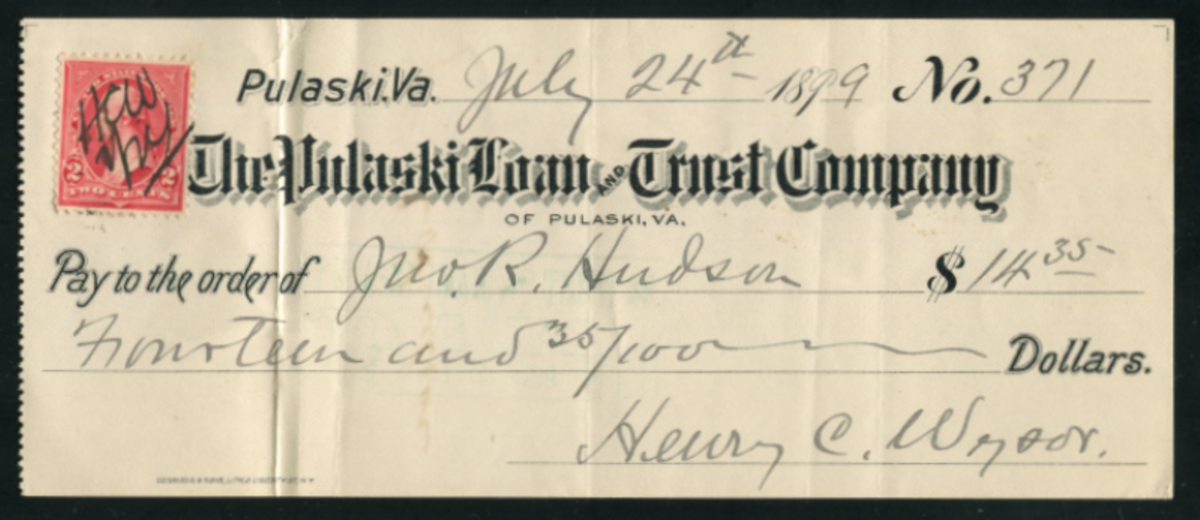 Pulaski.Va. July 24th 1899 No. 371
The Pulaski Loan AND Trust Company
OF PULASKI, VA.
Pay to the order of Jno. R. Hudson $ 14 35
Fourteen and 35/100 Dollars.
Henry C. Wysor.
HCW
7/24
2 2
TWO CENTS